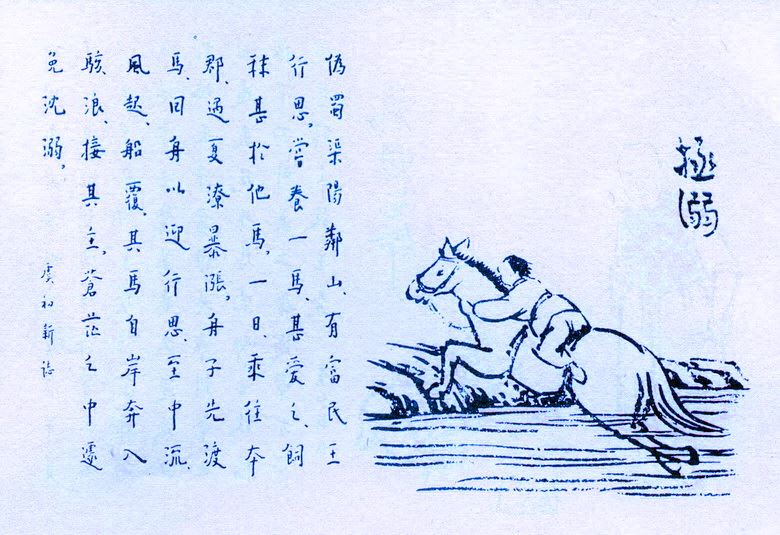 拯溺
偽蜀渠陽鄰山、有富民王
行思。嘗養一馬、甚愛之、飼
秣甚於他馬。一日、乘往本
郡、遇夏潦暴漲。舟子先渡
馬、回舟以迎行思、至中流、
風起、船覆。其馬自岸奔入
駭浪、接其主。蒼茫之中遽
免沈溺。
虞初新誌